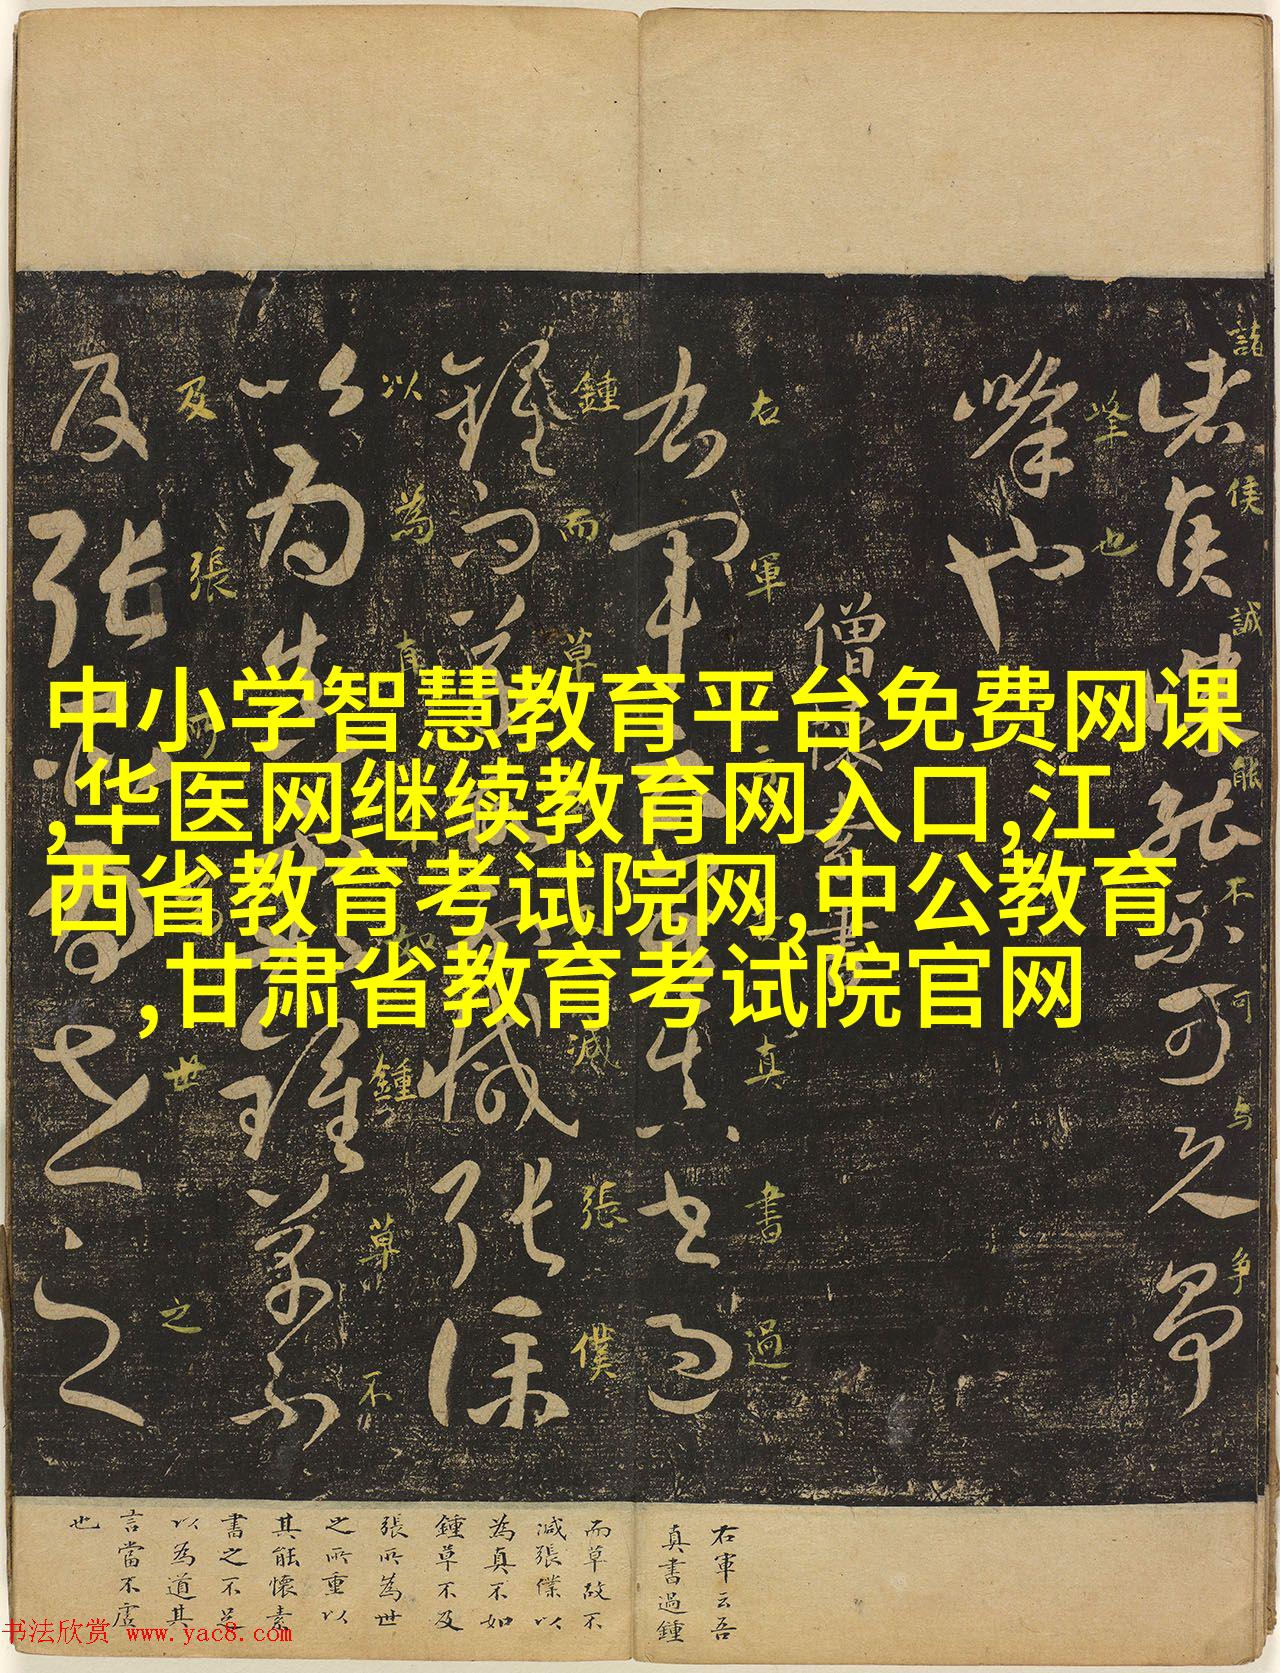 諸侯誠能不可与争
峰也
僧懷素書
右軍云吾真書過
鍾而草故不減張僕
以為真不如鍾草不
及張所為世之
中小学智慧教育平台免费网课
,华医网继续教育网入口,江
西省教育考试院网,中公教育
,甘肃省教育考试院官网
右軍云吾
真書過鍾
而草故不
減張僕以
為真不如
鍾草不及
張所為世
之所重以
其能懷素
書之不足
以為道其
言當不虛
也
书法欣赏 www.yac8.com